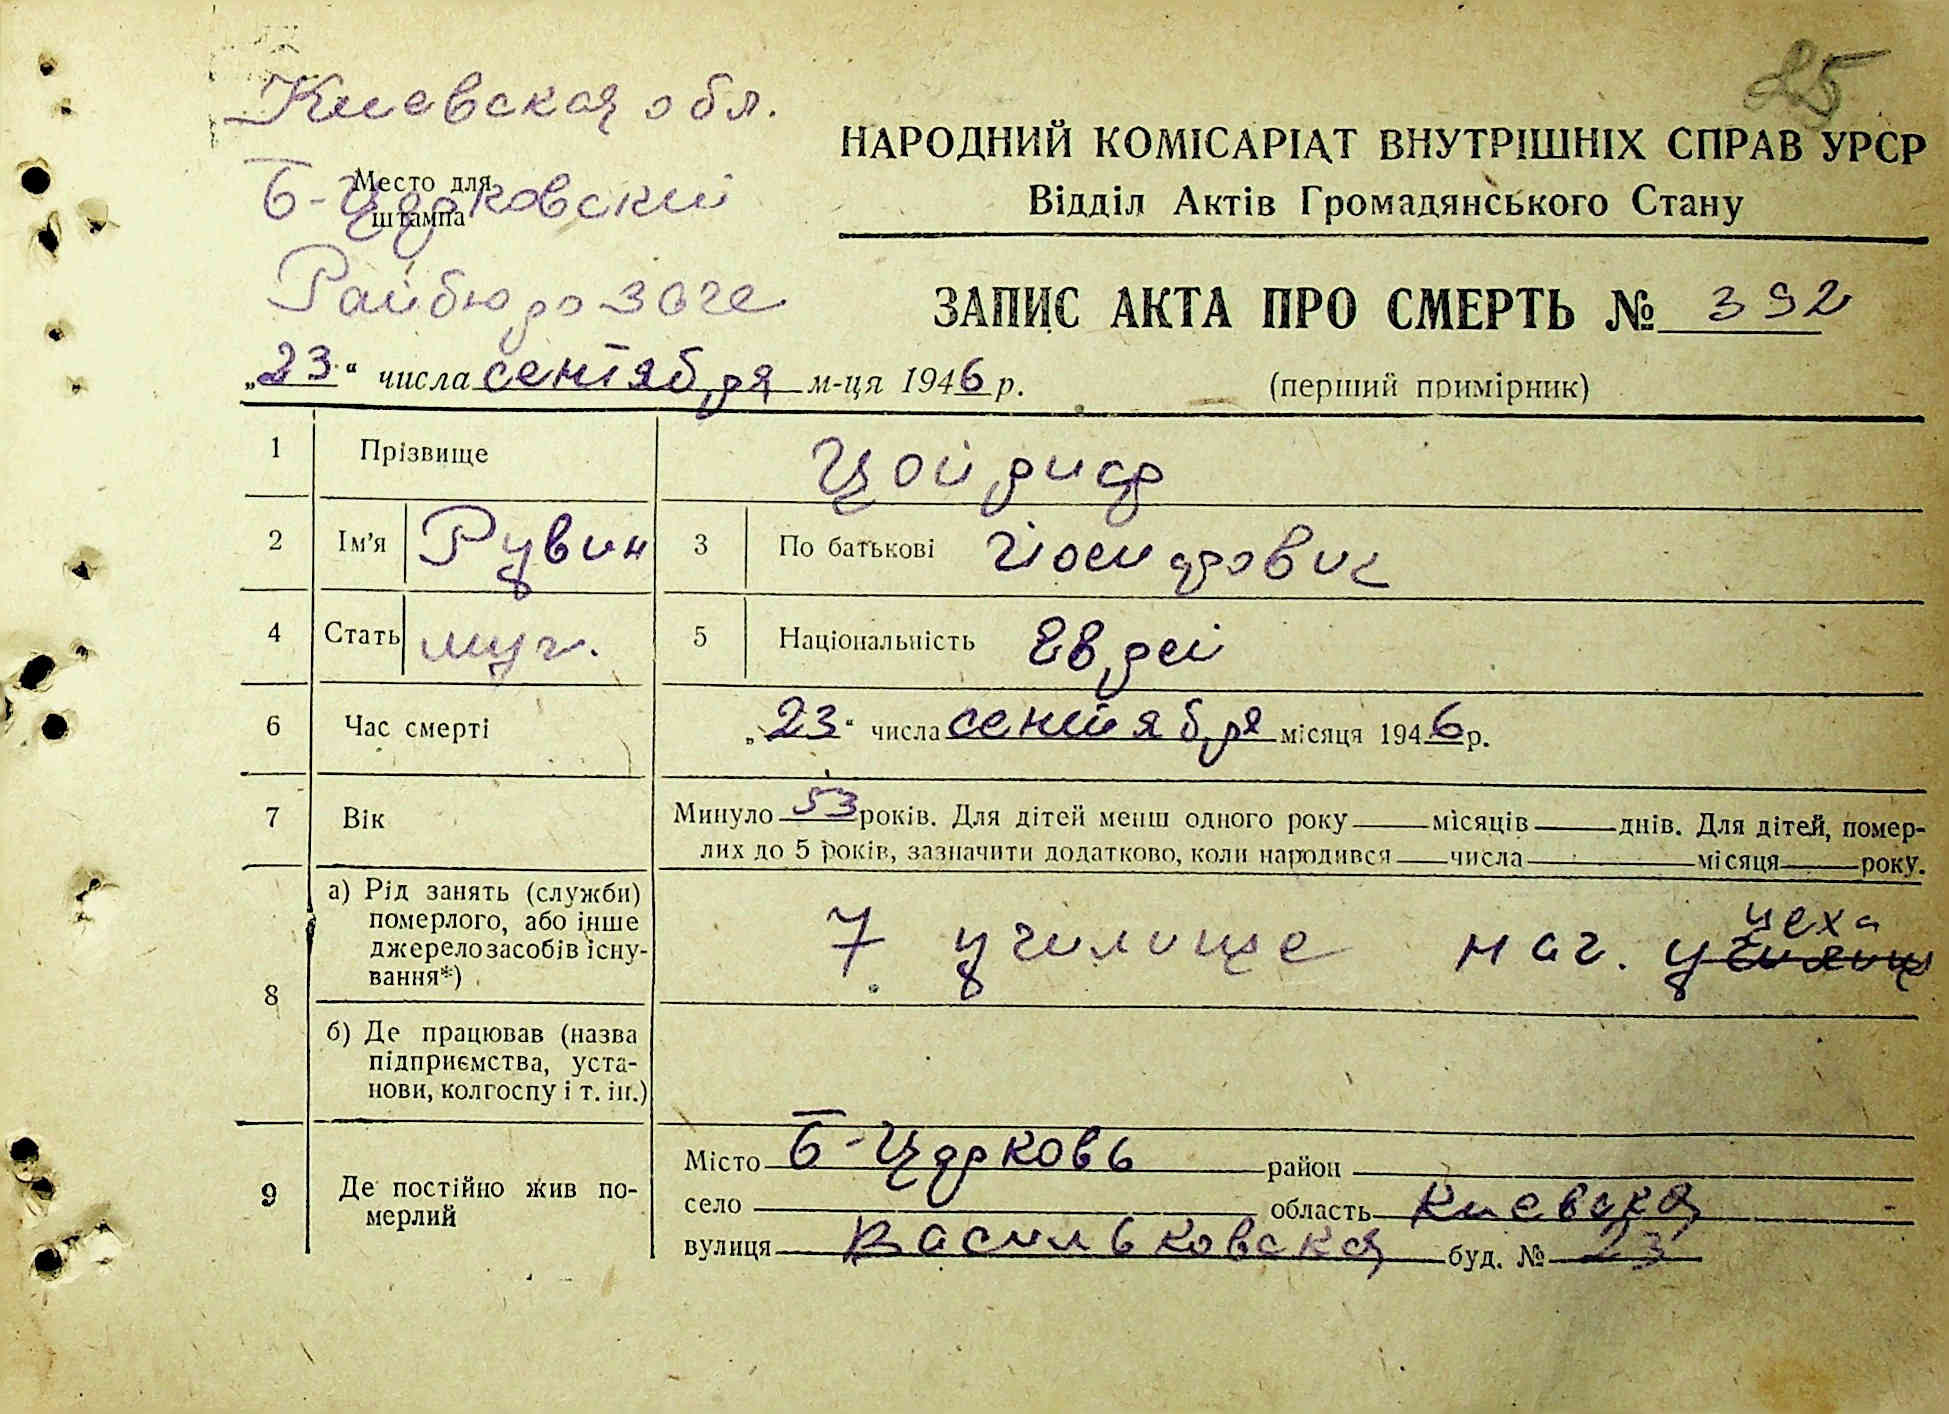 25
Киевская обл.
Б-Церковский
Место для
штампа
Райбюро Загс
НАРОДНИЙ КОМІСАРІАТ ВНУТРІШНІХ СПРАВ УРСР
Відділ Актів Громадянського Стану
ЗАПИС АКТА ПРО СМЕРТЬ № 392
„23“ числа сентября м-ця 1946 р.
(перший примірник)
1 Прізвище Цойриф
2 Ім'я Рувин 3 По батькові Иосифович
4 Стать муж. 5 Національність Еврей
6 Час смерті „23“ числа сентября місяця 1946 р.
7 Вік Минуло 53 років. Для дітей менш одного року місяців днів. Для дітей, помер-
лих до 5 років, зазначити додатково, коли народився числа місяця року.
8 а) Рід занять (служби)
померлого, або інше
джерело засобів існу-
вання*)
7 училище нач. училищ цеха
б) Де працював (назва
підприємства, уста-
нови, колгоспу і т. ін.)
9 Де постійно жив по-
мерлий
Місто Б-Церковь район
село область Киевская
вулиця Васильковская буд. № 23